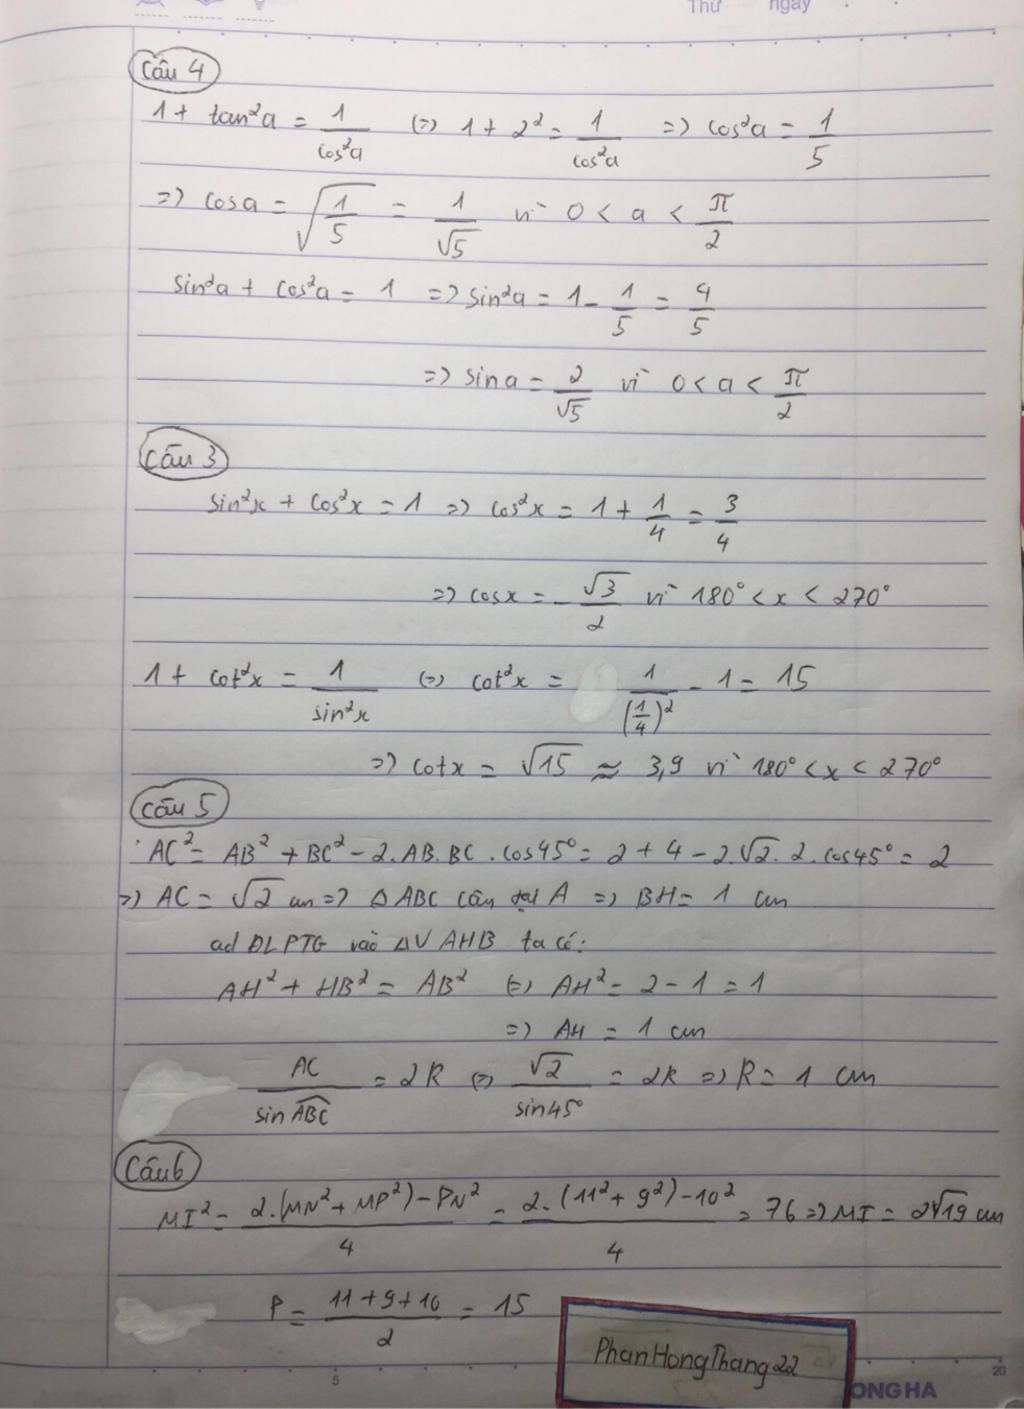 Thứ ngày
Câu 4
1 + tan²a = 1/cos²a (=) 1 + 2² = 1/cos²a => cos²a = 1/5
=> cosa = √(1/5) = 1/√5 vì 0 < a < π/2
sin²a + cos²a = 1 => sin²a = 1 - 1/5 = 4/5
=> sina = 2/√5 vì 0 < a < π/2
Câu 3
sin²x + cos²x = 1 => cos²x = 1 + 1/4 = 3/4
=> cosx = -√3/2 vì 180° < x < 270°
1 + cot²x = 1/sin²x (=) cot²x = 1/(1/4)² - 1 = 15
=> cotx = √15 ≈ 3,9 vì 180° < x < 270°
Câu 5
AC² = AB² + BC² - 2.AB.BC.cos45° = 2 + 4 - 2.√2.2.cos45° = 2
=> AC = √2 cm => △ABC cân tại A => BH = 1 cm
ad ĐLPTG vào △V AHB ta có:
AH² + HB² = AB² (=) AH² = 2 - 1 = 1
=> AH = 1 cm
AC/sin ABC = 2R (=) √2/sin45° = 2R => R = 1 cm
Câu 6
MI² = 2.(MN² + MP²) - PN²/4 = 2.(11² + 9²) - 10²/4 = 76 => MI = 2√19 cm
P = 11 + 9 + 10/2 = 15
PhanHongThang22
5
20
ONG HA